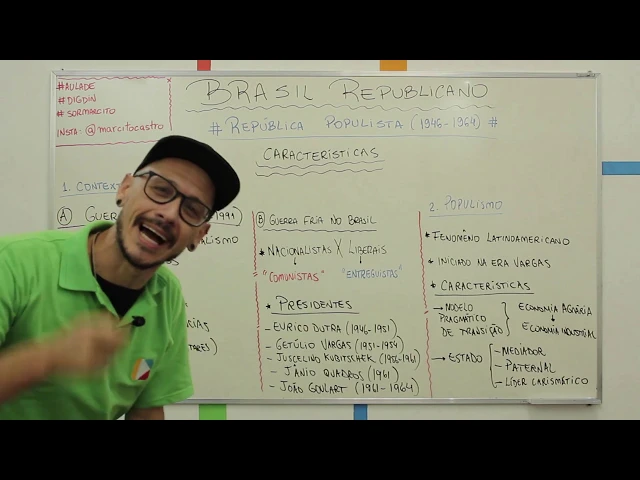 #AULADE
#DIGDIN
#SORMARCITO
INSTA: @marcitocastro
BRASIL REPUBLICANO
# REPÚBLICA POPULISTA (1946-1964) #
CARACTERÍSTICAS
1. CONTEX
A GUER
-1991)
ALISMO
B GUERRA FRIA NO BRASIL
* NACIONALISTAS X LIBERAIS
"COMUNISTAS" "ENTREGUISTAS"
* PRESIDENTES
- EURICO DUTRA (1946-1951)
- GETÚLIO VARGAS (1951-1954)
- JUSCELINO KUBITSCHEK (1956-1961)
- JÂNIO QUADROS (1961)
- JOÃO GOULART (1961-1964)
2. POPULISMO
* FENOMÊNO LATINOAMERICANO
* INICIADO NA ERA VARGAS
* CARACTERÍSTICAS
→ MODELO PRAGMÁTICO DE TRANSIÇÃO
ECONOMIA AGRÁRIA
ECONOMIA INDUSTRIAL
→ ESTADO
- MEDIADOR
- PATERNAL
- LÍDER CARISMÁTICO